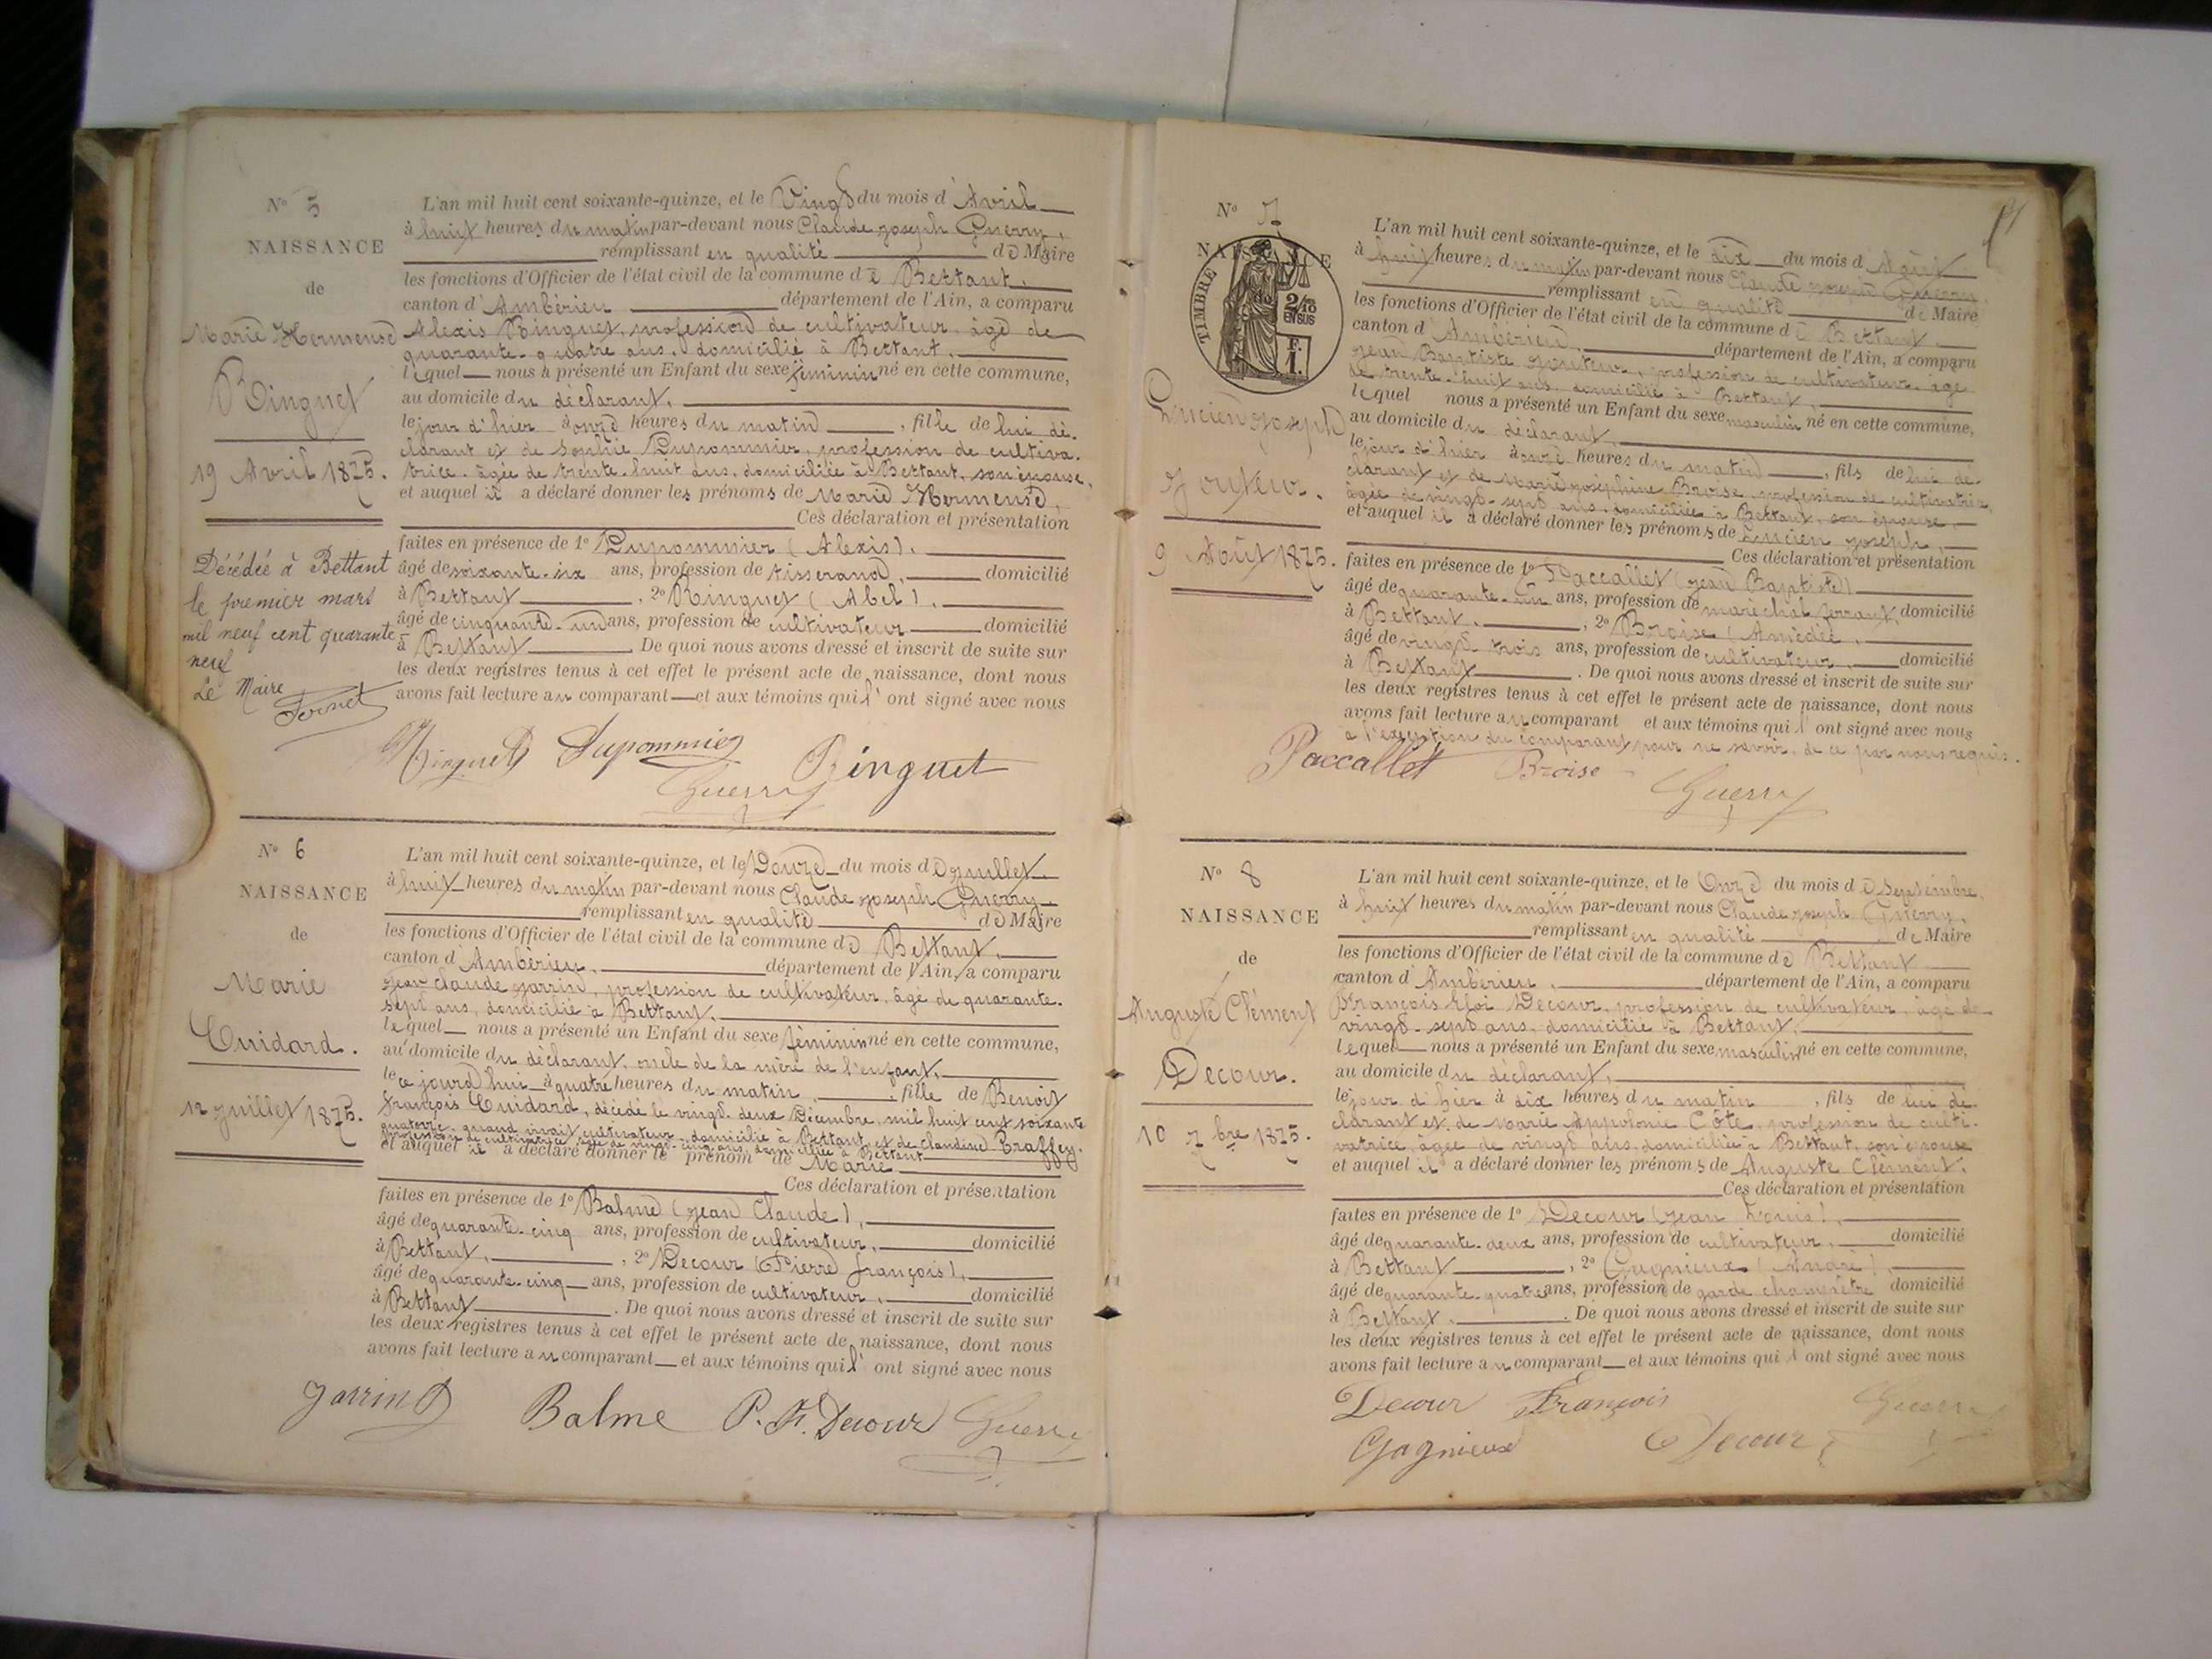 N° 5
NAISSANCE
de
Marie Hermense
Ringuet
19 Avril 1875.
Décédée à Bettant
le premier mars
mil neuf cent quarante
neuf
Le Maire
L'an mil huit cent soixante-quinze, et le Vingt du mois d'Avril
à huit heures du matin par-devant nous Claude joseph Guerry,
remplissant en qualité de Maire
les fonctions d'Officier de l'état civil de la commune de Bettant,
canton d'Ambérieu département de l'Ain, a comparu
Alexis Ringuet, profession de cultivateur, âgé de
quarante-quatre ans, domicilié à Bettant,
lequel nous a présenté un Enfant du sexe féminin né en cette commune,
au domicile du déclarant,
le jour d'hier à onze heures du matin, fille de lui dé-
clarant et de Sophie Dupommier, profession de cultiva-
trice, âgée de trente-huit ans, domiciliée à Bettant, son épouse,
et auquel il a déclaré donner les prénoms de Marie Hermense,
Ces déclaration et présentation
faites en présence de 1° Dupommier (Alexis),
âgé de soixante-six ans, profession de tisserand, domicilié
à Bettant, 2° Ringuet (Abel),
âgé de cinquante-un ans, profession de cultivateur domicilié
à Bettant. De quoi nous avons dressé et inscrit de suite sur
les deux registres tenus à cet effet le présent acte de naissance, dont nous
avons fait lecture au comparant et aux témoins qui l'ont signé avec nous
Ringuet Dupommier Ringuet
Guerry
N° 6
NAISSANCE
de
Marie
Cuidard.
12 juillet 1875.
L'an mil huit cent soixante-quinze, et le Douze du mois de juillet
à huit heures du matin par-devant nous Claude joseph Guerry
remplissant en qualité de Maire
les fonctions d'Officier de l'état civil de la commune de Bettant,
canton d'Ambérieu, département de l'Ain, a comparu
jean claude jarrin, profession de cultivateur, âgé de quarante-
sept ans, domicilié à Bettant,
lequel nous a présenté un Enfant du sexe féminin né en cette commune,
au domicile du déclarant, oncle de la mère de l'enfant,
le ce jourd'hui à quatre heures du matin, fille de Benoit
françois Cuidard, décédé le vingt-deux Décembre mil huit cent soixante
quatorze, quand vivait cultivateur, domicilié à Bettant et de claudine Braffey,
profession de cultivatrice âgée de vingt-cinq ans, domiciliée à Bettant
et auquel il a déclaré donner le prénom de Marie
Ces déclaration et présentation
faites en présence de 1° Balme (jean Claude),
âgé de quarante-cinq ans, profession de cultivateur, domicilié
à Bettant, 2° Decour (Pierre françois),
âgé de quarante-cinq ans, profession de cultivateur, domicilié
à Bettant. De quoi nous avons dressé et inscrit de suite sur
les deux registres tenus à cet effet le présent acte de naissance, dont nous
avons fait lecture au comparant et aux témoins qui l'ont signé avec nous
Jarrin Balme P. F. Decour Guerry
N° 7
NAISSANCE
de
TIMBRE
2/10
EN SUS
F.
1.
Lucien joseph
jouteur.
9 Août 1875.
L'an mil huit cent soixante-quinze, et le dix du mois d'Août
à huit heures du matin par-devant nous Claude joseph Guerry,
remplissant en qualité de Maire
les fonctions d'Officier de l'état civil de la commune de Bettant
canton d'Ambérieu, département de l'Ain, a comparu
jean Baptiste jouteur, profession de cultivateur, âgé
de trente-huit ans, domicilié à Bettant,
lequel nous a présenté un Enfant du sexe masculin né en cette commune,
au domicile du déclarant,
le jour d'hier à onze heures du matin, fils de lui dé-
clarant et de Marie josephine Broise, profession de cultivatrice,
âgée de vingt-sept ans, domiciliée à Bettant, son épouse,
et auquel il a déclaré donner les prénoms de Lucien joseph,
Ces déclaration et présentation
faites en présence de 1° Paccallet (jean Baptiste)
âgé de quarante-un ans, profession de maréchal ferrant, domicilié
à Bettant, 2° Broise (Amédée),
âgé de vingt trois ans, profession de cultivateur, domicilié
à Bettant. De quoi nous avons dressé et inscrit de suite sur
les deux registres tenus à cet effet le présent acte de naissance, dont nous
avons fait lecture au comparant et aux témoins qui l'ont signé avec nous
à l'exception du comparant pour ne savoir, de ce par nous requis.
Paccallet Broise
Guerry
N° 8
NAISSANCE
de
Auguste Clément
Decour.
10 7bre 1875.
L'an mil huit cent soixante-quinze, et le Onze du mois de Septembre,
à huit heures du matin par-devant nous Claude joseph Guerry,
remplissant en qualité de Maire
les fonctions d'Officier de l'état civil de la commune de Bettant
canton d'Ambérieu, département de l'Ain, a comparu
François Eloi Decour, profession de cultivateur, âgé de
vingt-sept ans, domicilié à Bettant,
lequel nous a présenté un Enfant du sexe masculin né en cette commune,
au domicile du déclarant,
le jour d'hier à dix heures du matin, fils de lui dé-
clarant et de Marie Appolonie Côte, profession de culti-
vatrice, âgée de vingt ans, domiciliée à Bettant, son épouse
et auquel il a déclaré donner les prénoms de Auguste Clément,
Ces déclaration et présentation
faites en présence de 1° Decour (jean Louis),
âgé de quarante-deux ans, profession de cultivateur, domicilié
à Bettant, 2° Gagnieux (André),
âgé de quarante-quatre ans, profession de garde champêtre domicilié
à Bettant. De quoi nous avons dressé et inscrit de suite sur
les deux registres tenus à cet effet le présent acte de naissance, dont nous
avons fait lecture au comparant et aux témoins qui l'ont signé avec nous
Decour François Guerry
Gagnieux Decour